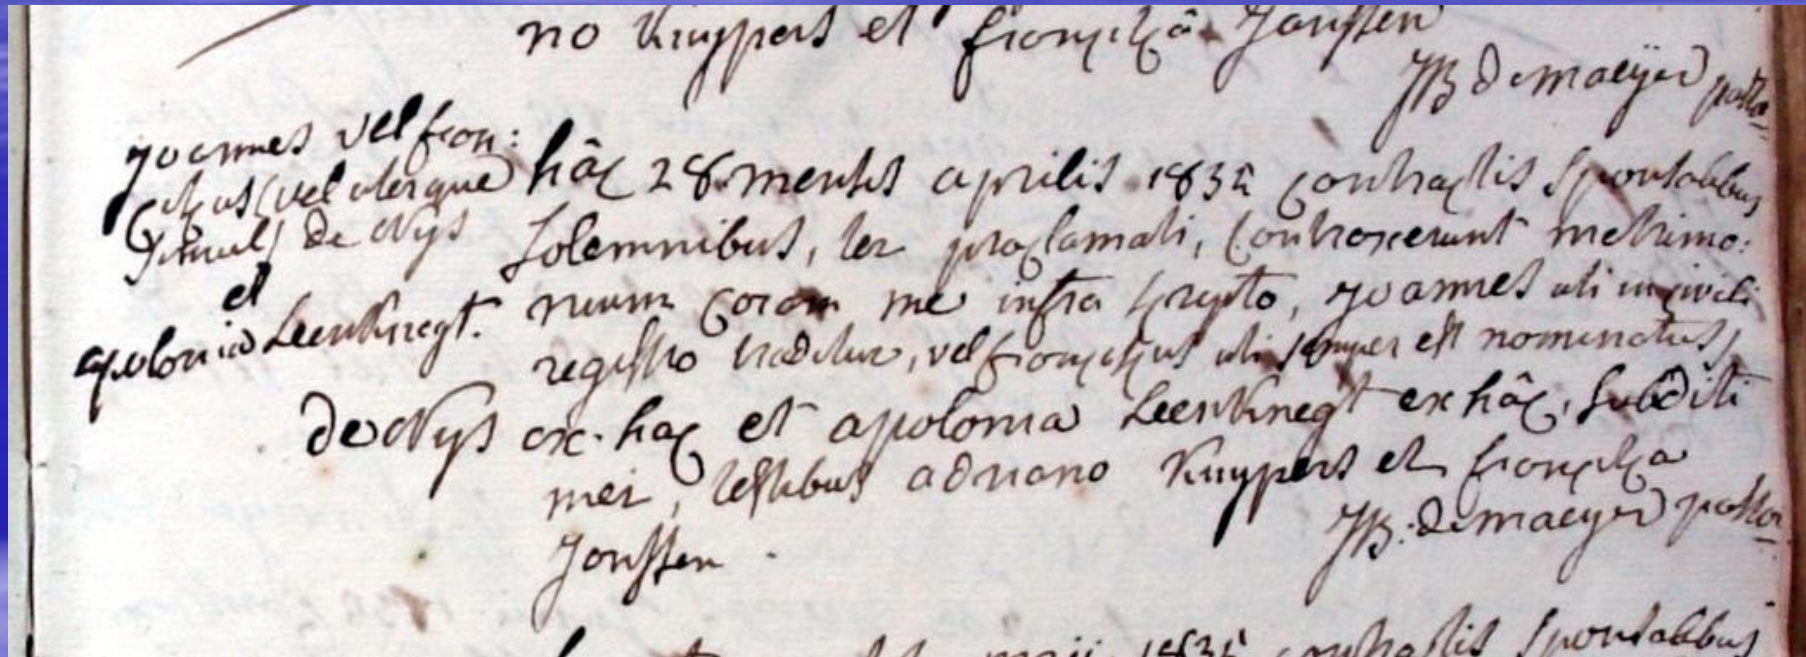 no Kuypers et francisca Janssen
JB De maeyer pastor
joannes vel fran:
ciscus (vel uterque
simul) De Nys
et
apolonia Leenknegt.
hac 28 mensis aprilis 1835 contractis sponsalibus
solemnibus, ter proclamati, contraxerunt matrimo:
nium coram me infra scripto, joannes uti in civili
registro traditur, vel franciscus uti semper est nominatus,
De Nys ex hac et apolonia Leenknegt ex hâc, subditi
mei, testibus adriano Kuypers et francisca
Janssen.
JB. De maeyer pastor
maii 1835 contractis sponsalibus